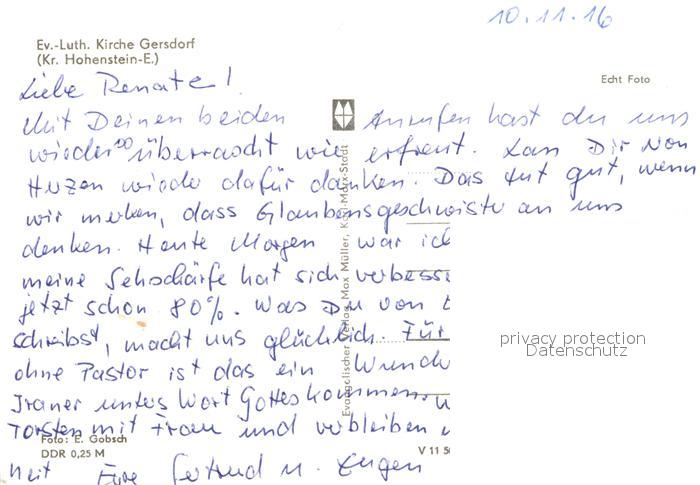 10.11.16
Ev.-Luth. Kirche Gersdorf
(Kr. Hohenstein-E.)
Echt Foto
Liebe Renate!
Mit Deinen beiden Anrufen hast du uns
wieder überrascht wie erfreut. Lass Dir von
Herzen wieder dafür danken. Das tut gut, wenn
wir merken, dass Glaubensgeschwister an uns
denken. Heute Morgen war ich
meine Sehschärfe hat sich verbess
jetzt schon 80%. Was Du von
schreibst, macht uns glücklich. Für
ohne Pastor ist das ein Wunder
Iraner unters Wort Gottes kommen.
Torsten mit Frau und verbleiben
heit Eure Gertrud u. Eugen
Evangelischer Verlag Max Müller, Karl-Marx-Stadt
Foto: E. Gobsch
DDR 0,25 M
V 11 50
privacy protection
Datenschutz